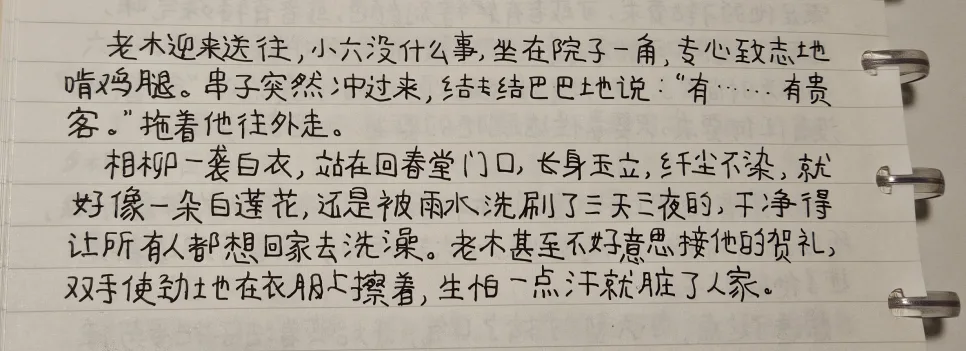 老木迎来送往，小六没什么事，坐在院子一角，专心致志地
啃鸡腿。串子突然冲过来，结结巴巴地说：“有……有贵
客。”拖着他往外走。
相柳一袭白衣，站在回春堂门口，长身玉立，纤尘不染，就
好像一朵白莲花，还是被雨水洗刷了三天三夜的，干净得
让所有人都想回家去洗澡。老木甚至不好意思接他的贺礼，
双手使劲地在衣服上擦着，生怕一点汗就脏了人家。